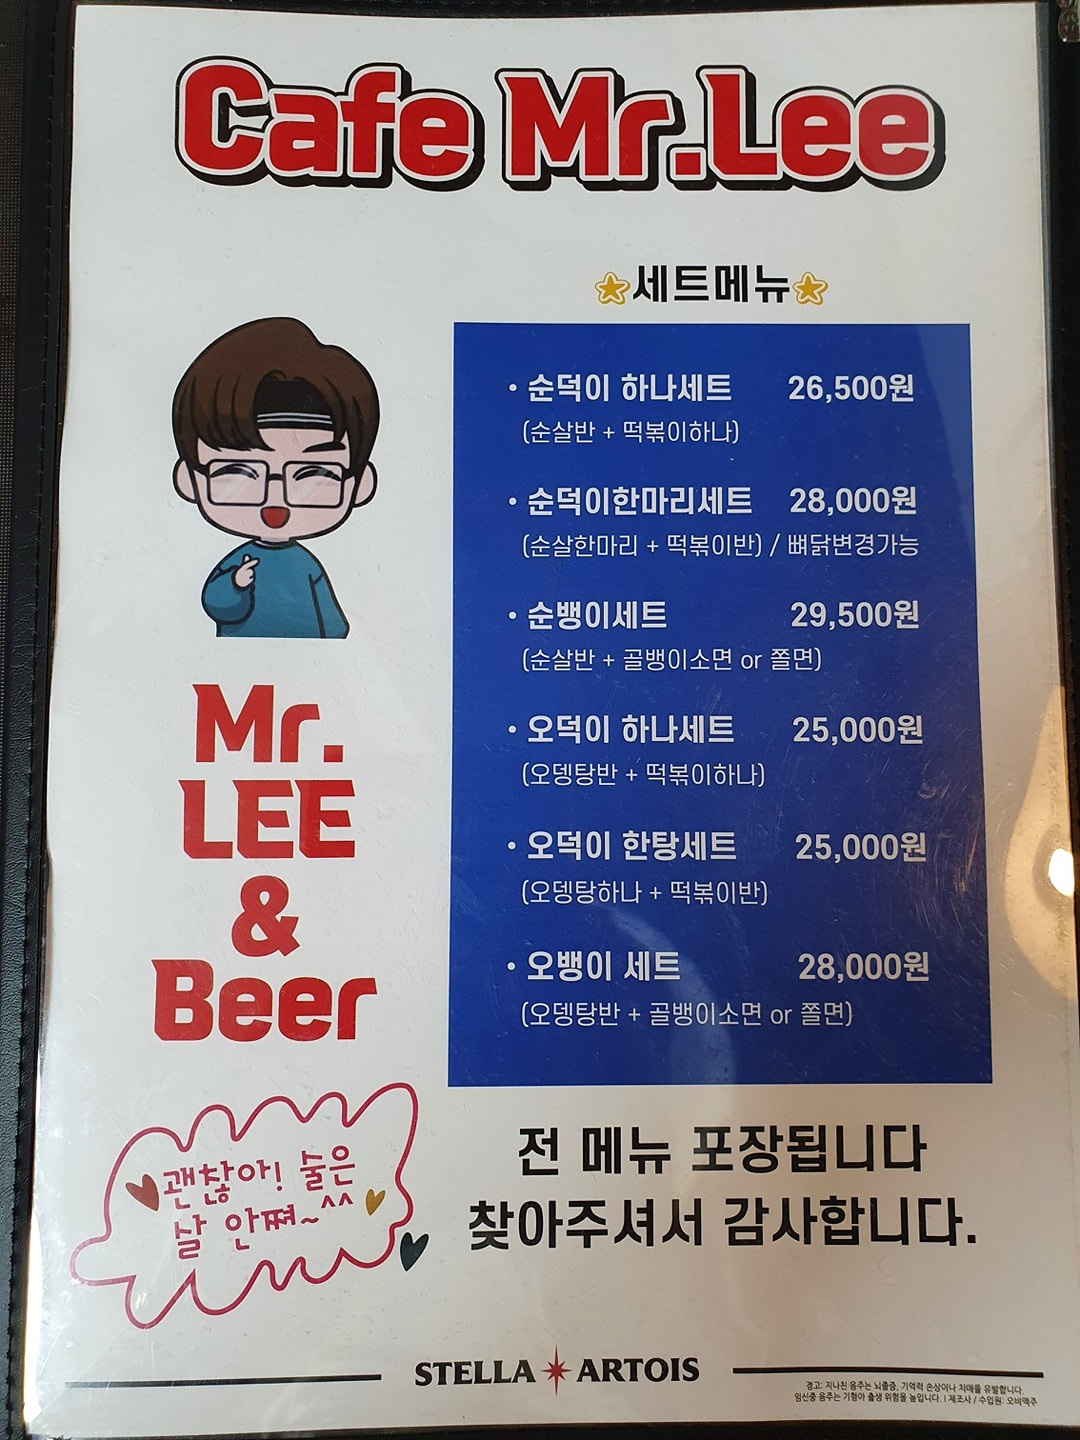 Cafe Mr.Lee
세트메뉴
• 순덕이 하나세트 26,500원
(순살반 + 떡볶이하나)
• 순덕이한마리세트 28,000원
(순살한마리 + 떡볶이반) / 뼈닭변경가능
• 순뱅이세트 29,500원
(순살반 + 골뱅이소면 or 쫄면)
• 오덕이 하나세트 25,000원
(오뎅탕반 + 떡볶이하나)
• 오덕이 한탕세트 25,000원
(오뎅탕하나 + 떡볶이반)
• 오뱅이 세트 28,000원
(오뎅탕반 + 골뱅이소면 or 쫄면)
Mr.
LEE
&
Beer
괜찮아! 술은
살 안쪄~^^
전 메뉴 포장됩니다
찾아주셔서 감사합니다.
STELLA ARTOIS
경고: 지나친 음주는 뇌졸중, 기억력 손상이나 치매를 유발합니다.
임신중 음주는 기형아 출생 위험을 높입니다. | 제조사 / 수입원: 오비맥주